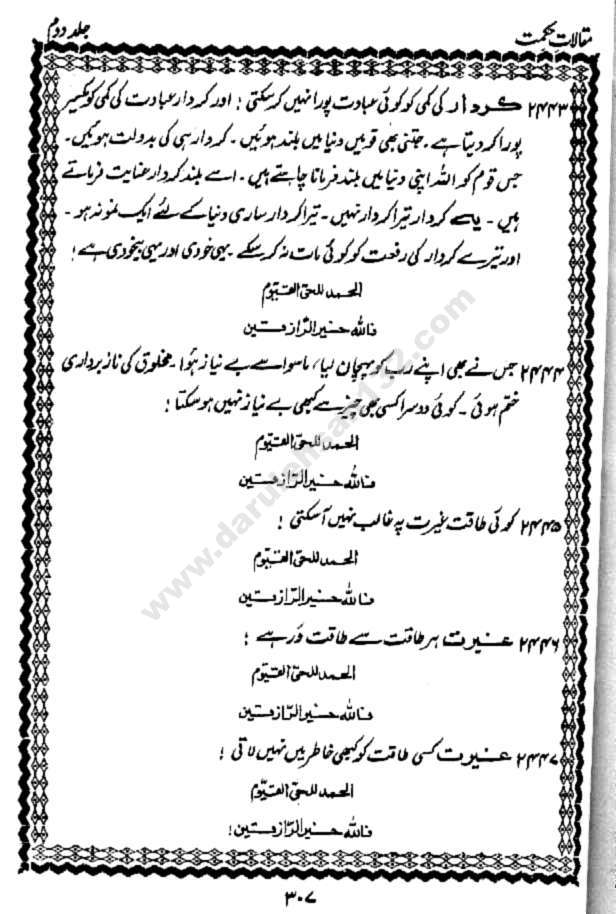 مقالاتِ حکمت
جلد دوم
۲۴۴۳ کردار کی کمی کو کوئی عبادت پورا نہیں کر سکتی! اور کردار عبادت کی کمی کو یکسر
پورا کر دیتا ہے۔ جتنی بھی قومیں دنیا میں بلند ہوئیں۔ کردار ہی کی بدولت ہوئیں۔
جس قوم کو اللہ اپنی دنیا میں بلند فرمانا چاہتے ہیں۔ اسے بلند کردار عنایت فرماتے
ہیں۔ یہ کردار تیرا کردار نہیں۔ تیرا کردار ساری دنیا کے لئے ایک نمونہ ہو۔
اور تیرے کردار کی رفعت کو کوئی مات نہ کر سکے یہی خودی اور یہی بیخودی ہے!
الحمد للحیّ القیّوم
فاللہ خیر الرّازقین
۲۴۴۴ جس نے بھی اپنے رب کو پہچان لیا، ماسوا سے بے نیاز ہوا۔ مخلوق کی ناز برداری
ختم ہوئی۔ کوئی دوسرا کسی بھی چیز سے کبھی بے نیاز نہیں ہو سکتا!
الحمد للحیّ القیّوم
فاللہ خیر الرّازقین
۲۴۴۵ کوئی طاقت غیرت پہ غالب نہیں آ سکتی!
الحمد للحیّ القیّوم
فاللہ خیر الرّازقین
۲۴۴۶ غیرت ہر طاقت سے طاقت ور ہے!
الحمد للحیّ القیّوم
فاللہ خیر الرّازقین
۲۴۴۷ غیرت کسی طاقت کو کبھی خاطر میں نہیں لاتی!
الحمد للحیّ القیّوم
فاللہ خیر الرّازقین!
۳۰۷
www.darulehsan132.com